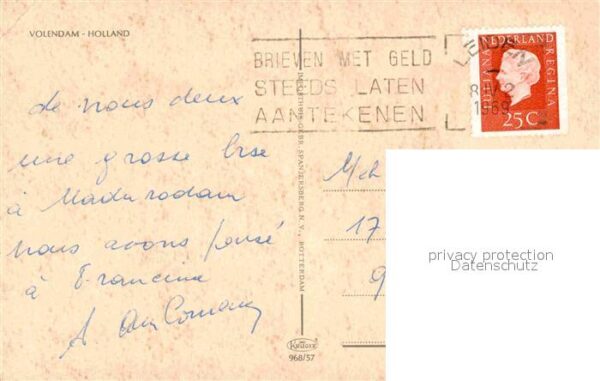 VOLENDAM - HOLLAND
BRIEVEN MET GELD
STEEDS LATEN
AANTEKENEN
LEIDEN
1969
NEDERLAND
JULIANA REGINA
25C
de nous deux
une grosse bise
à Madurodam
nous avons pensé
à Francine
SPANJERSBERG N.V., ROTTERDAM
Mch
17
9
968/57
privacy protection
Datenschutz